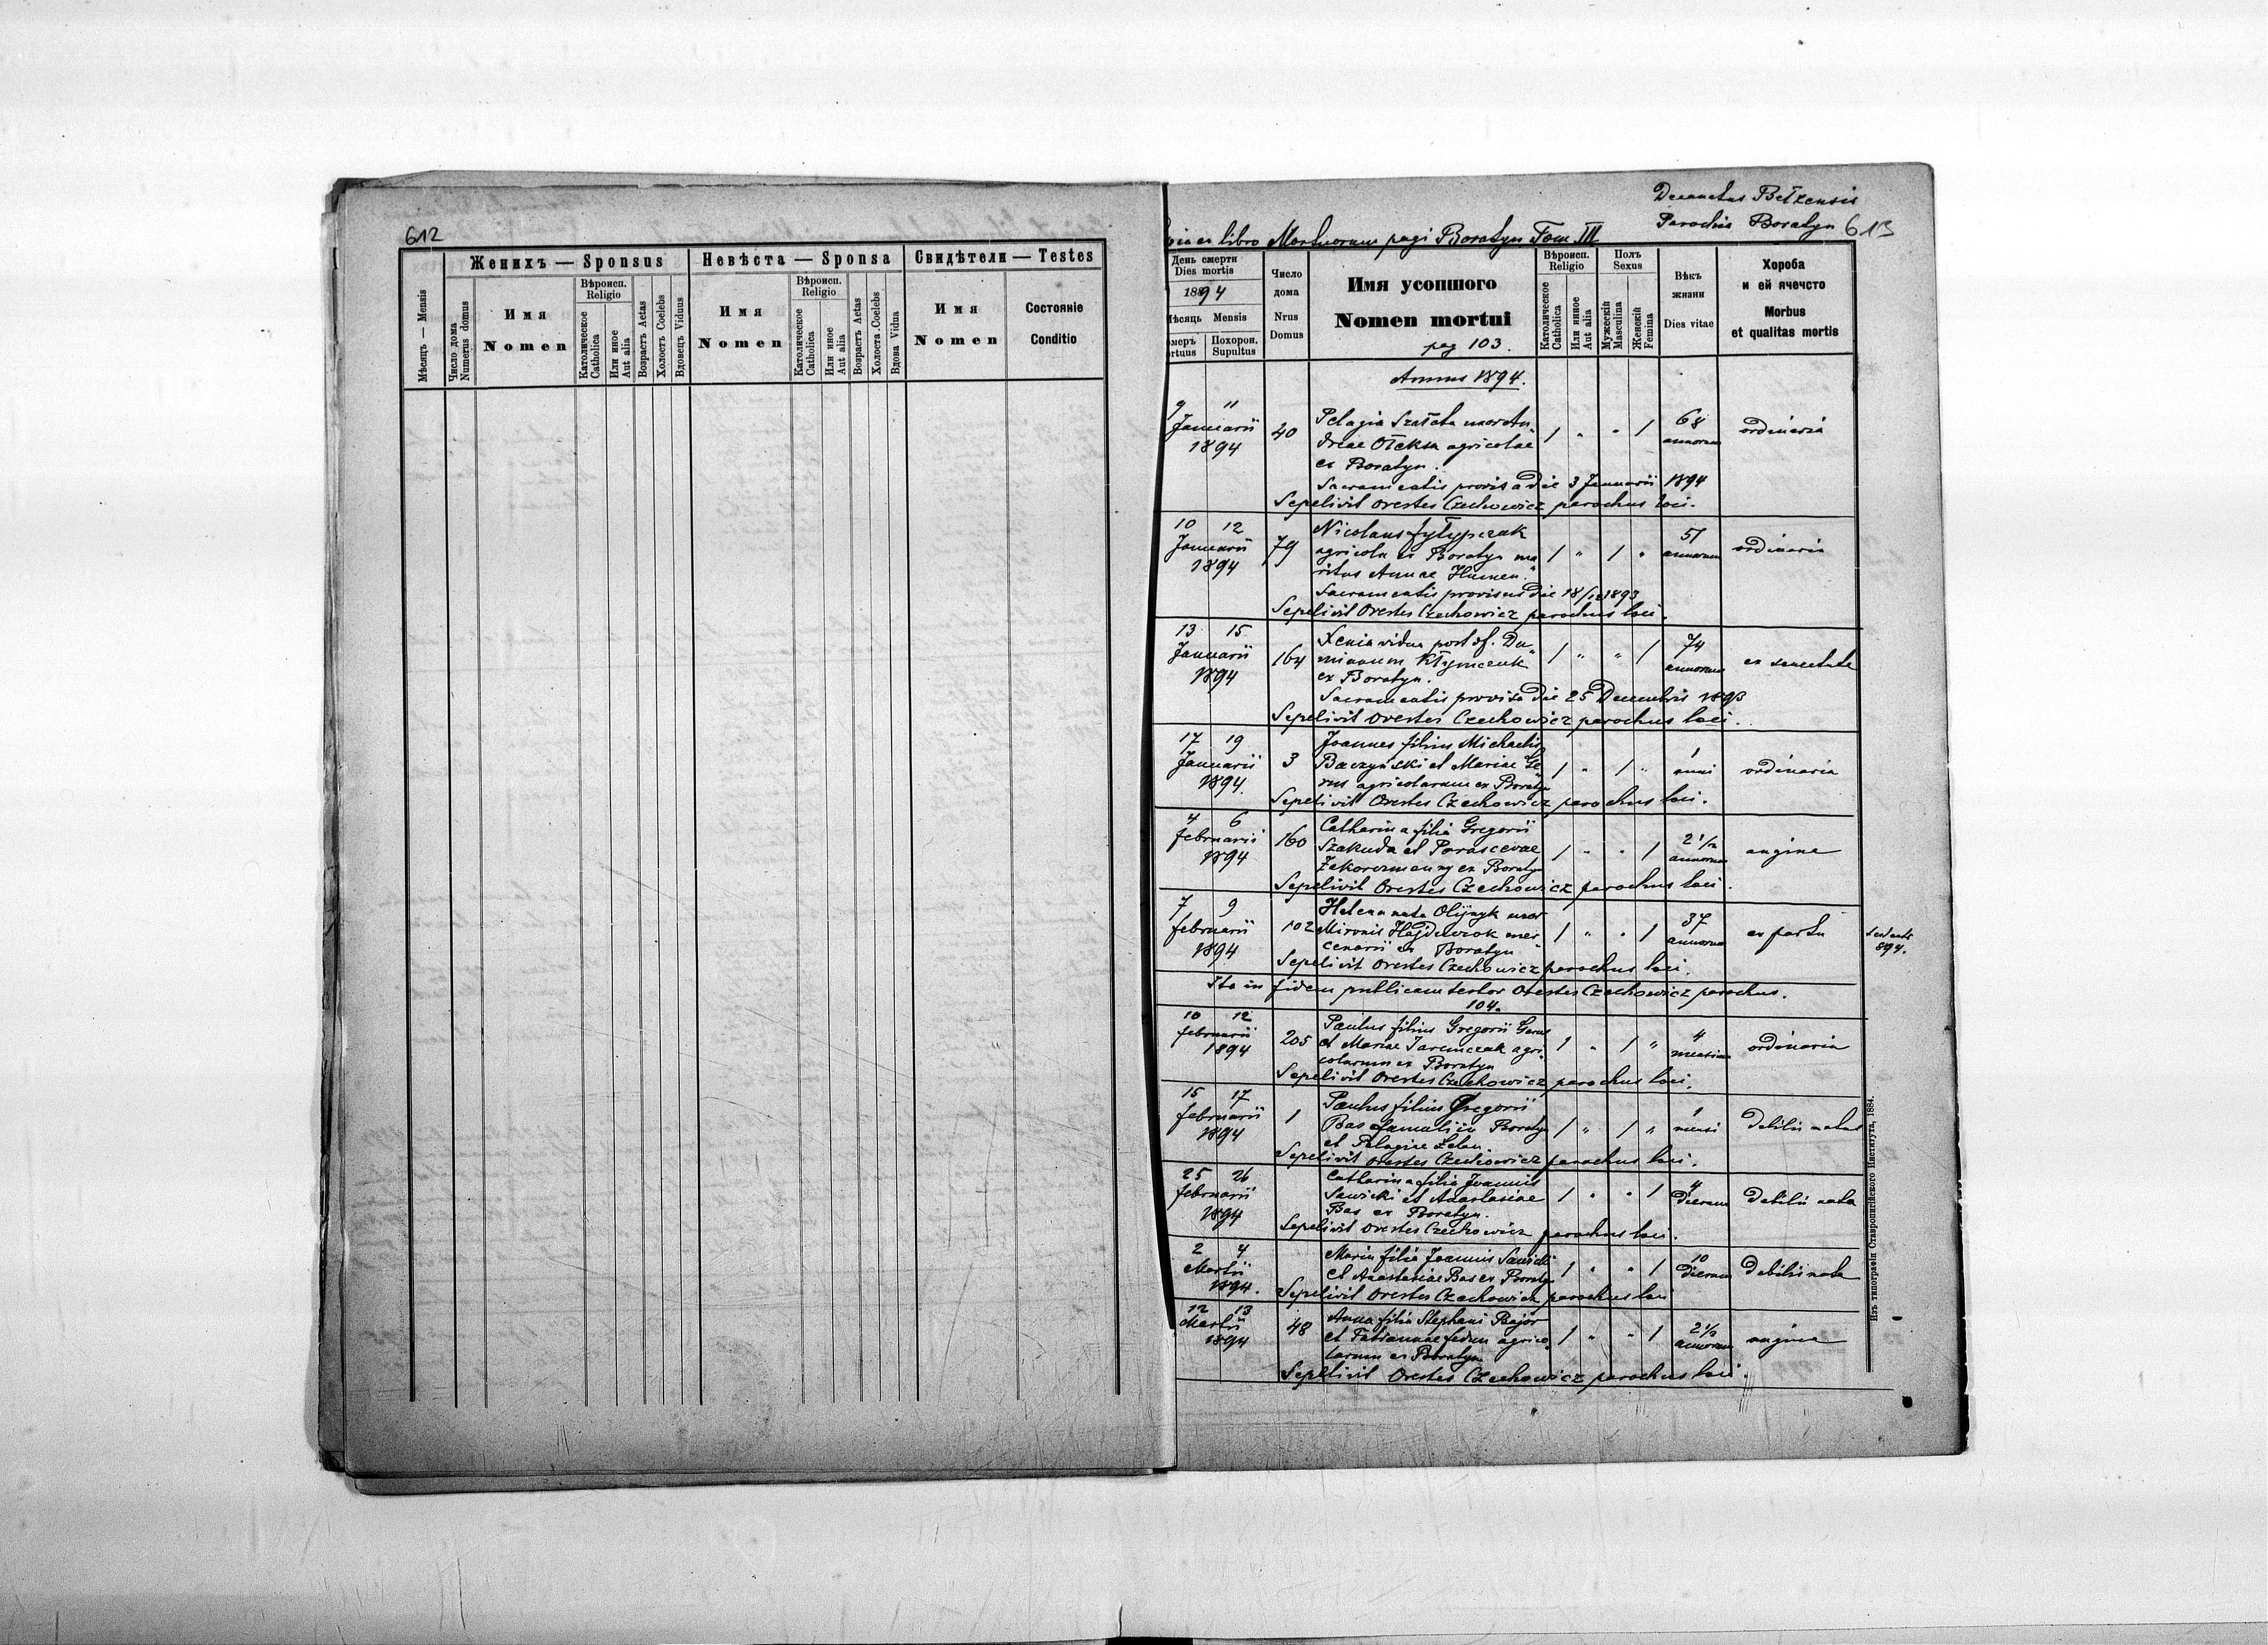 612
Женихъ — Sponsus
Невѣста — Sponsa
Свидѣтели — Testes
Мѣсяцъ — Mensis
Число дома
Numerus domus
Имя
Nomen
Вѣроисп.
Religio
Католическое
Catholica
Или иное
Aut alia
Возрастъ Aetas
Холостъ Coelebs
Вдовецъ Viduus
Имя
Nomen
Вѣроисп.
Religio
Католическое
Catholica
Или иное
Aut alia
Возрастъ Aetas
Холоста Coelebs
Вдова Vidua
Имя
Nomen
Состояніе
Conditio
Decanatus Bełzensis
Parochia Boratyn 613
ex libro Mortuorum pagi Boratyn Tom III
День смерти
Dies mortis
1894
Мѣсяцъ Mensis
Похорон.
Supultus
Число
дома
Nrus
Domus
Имя усопшого
Nomen mortui
pag 103.
Вѣроисп.
Religio
Католическое
Catholica
Или иное
Aut alia
Полъ
Sexus
Мужескій
Masculina
Женскій
Femina
Вѣкъ
жизни
Dies vitae
Хороба
и ей ячечсто
Morbus
et qualitas mortis
Annus 1894.
9 11
Januarii
1894
20
Pelagia Szałata uxor An„
dreae Ołeksa agricolae
ex Boratyn.
1 „ „ 1
68
annorum
ordinaria
Sacramentis provisa die 3 Januarii 1894
Sepelivit Orestes Czechowicz parochus loci.
10 12
Januarii
1894
79
Nicolaus
agricola ex Boratyn ma„
ritus Annae Humen.
1 „ 1 „
51
annorum
ordinaria
Sacramentis provisus die 18/12 1893
Sepelivit Orestes Czechowicz parochus loci.
13 15
Januarii
1894
164
Xenia vidua post def. Da„
mianum Kłymczuk
ex Boratyn.
1 „ „ 1
74
annorum
ex senectute
Sacramentis provisa die 25 Decembris 1893
Sepelivit Orestes Czechowicz parochus loci.
17 19
Januarii
1894.
3
Joannes filius Michaelis
Baczyński et Mariae Ge„
rus agricolarum ex Boratyn
1 „ 1 „
1
anni
ordinaria
Sepelivit Orestes Czechowicz parochus loci.
4 6
februarii
1894
160
Catharina filia Gregorii
Szakuda et Parascevae
ex Boratyn
1 „ „ 1
2 1/2
annorum
angina
Sepelivit Orestes Czechowicz parochus loci.
7 9
februarii
1894
102
Helena nata Olijnyk uxor
Mironis Hajduczok mer„
cenarii ex Boratyn
1 „ „ 1
37
annorum
ex partu
894.
Sepelivit Orestes Czechowicz parochus loci.
Ita in fidem publicam testor Orestes Czechowicz parochus.
104.
10 12
februarii
1894
205
Paulus filius Gregorii Gerus
et Mariae Jaremczak agri„
colarum ex Boratyn
1 „ 1 „
4
mensium
ordinaria
Sepelivit Orestes Czechowicz parochus loci.
15 17
februarii
1894
1
Paulus filius Gregorii
Bas famuli in Boratyn
et Pelagiae
1 „ 1 „
1
mensi
debilis natus
Sepelivit Orestes Czechowicz parochus loci.
25 26
februarii
1894
Catharina filia Joannis
Sawicki et Anastasiae
Bas ex Boratyn.
1 „ „ 1
4
dierum
debilis nata
Sepelivit Orestes Czechowicz parochus loci.
2 4
Martii
1894.
Maria filia Joannis Sawicki
et Anastasiae Bas ex Boratyn
1 „ „ 1
10
dierum
debilis nata
Sepelivit Orestes Czechowicz parochus loci
12 13
Martii
1894
48
Anna filia Stephani Bajor
et Tatiannae fedun agrico„
larum ex Boratyn
1 „ „ 1
2 1/2
annorum
angina
Sepelivit Orestes Czechowicz parochus loci.
Изъ типографіи Ставропигійского Института, 1884.